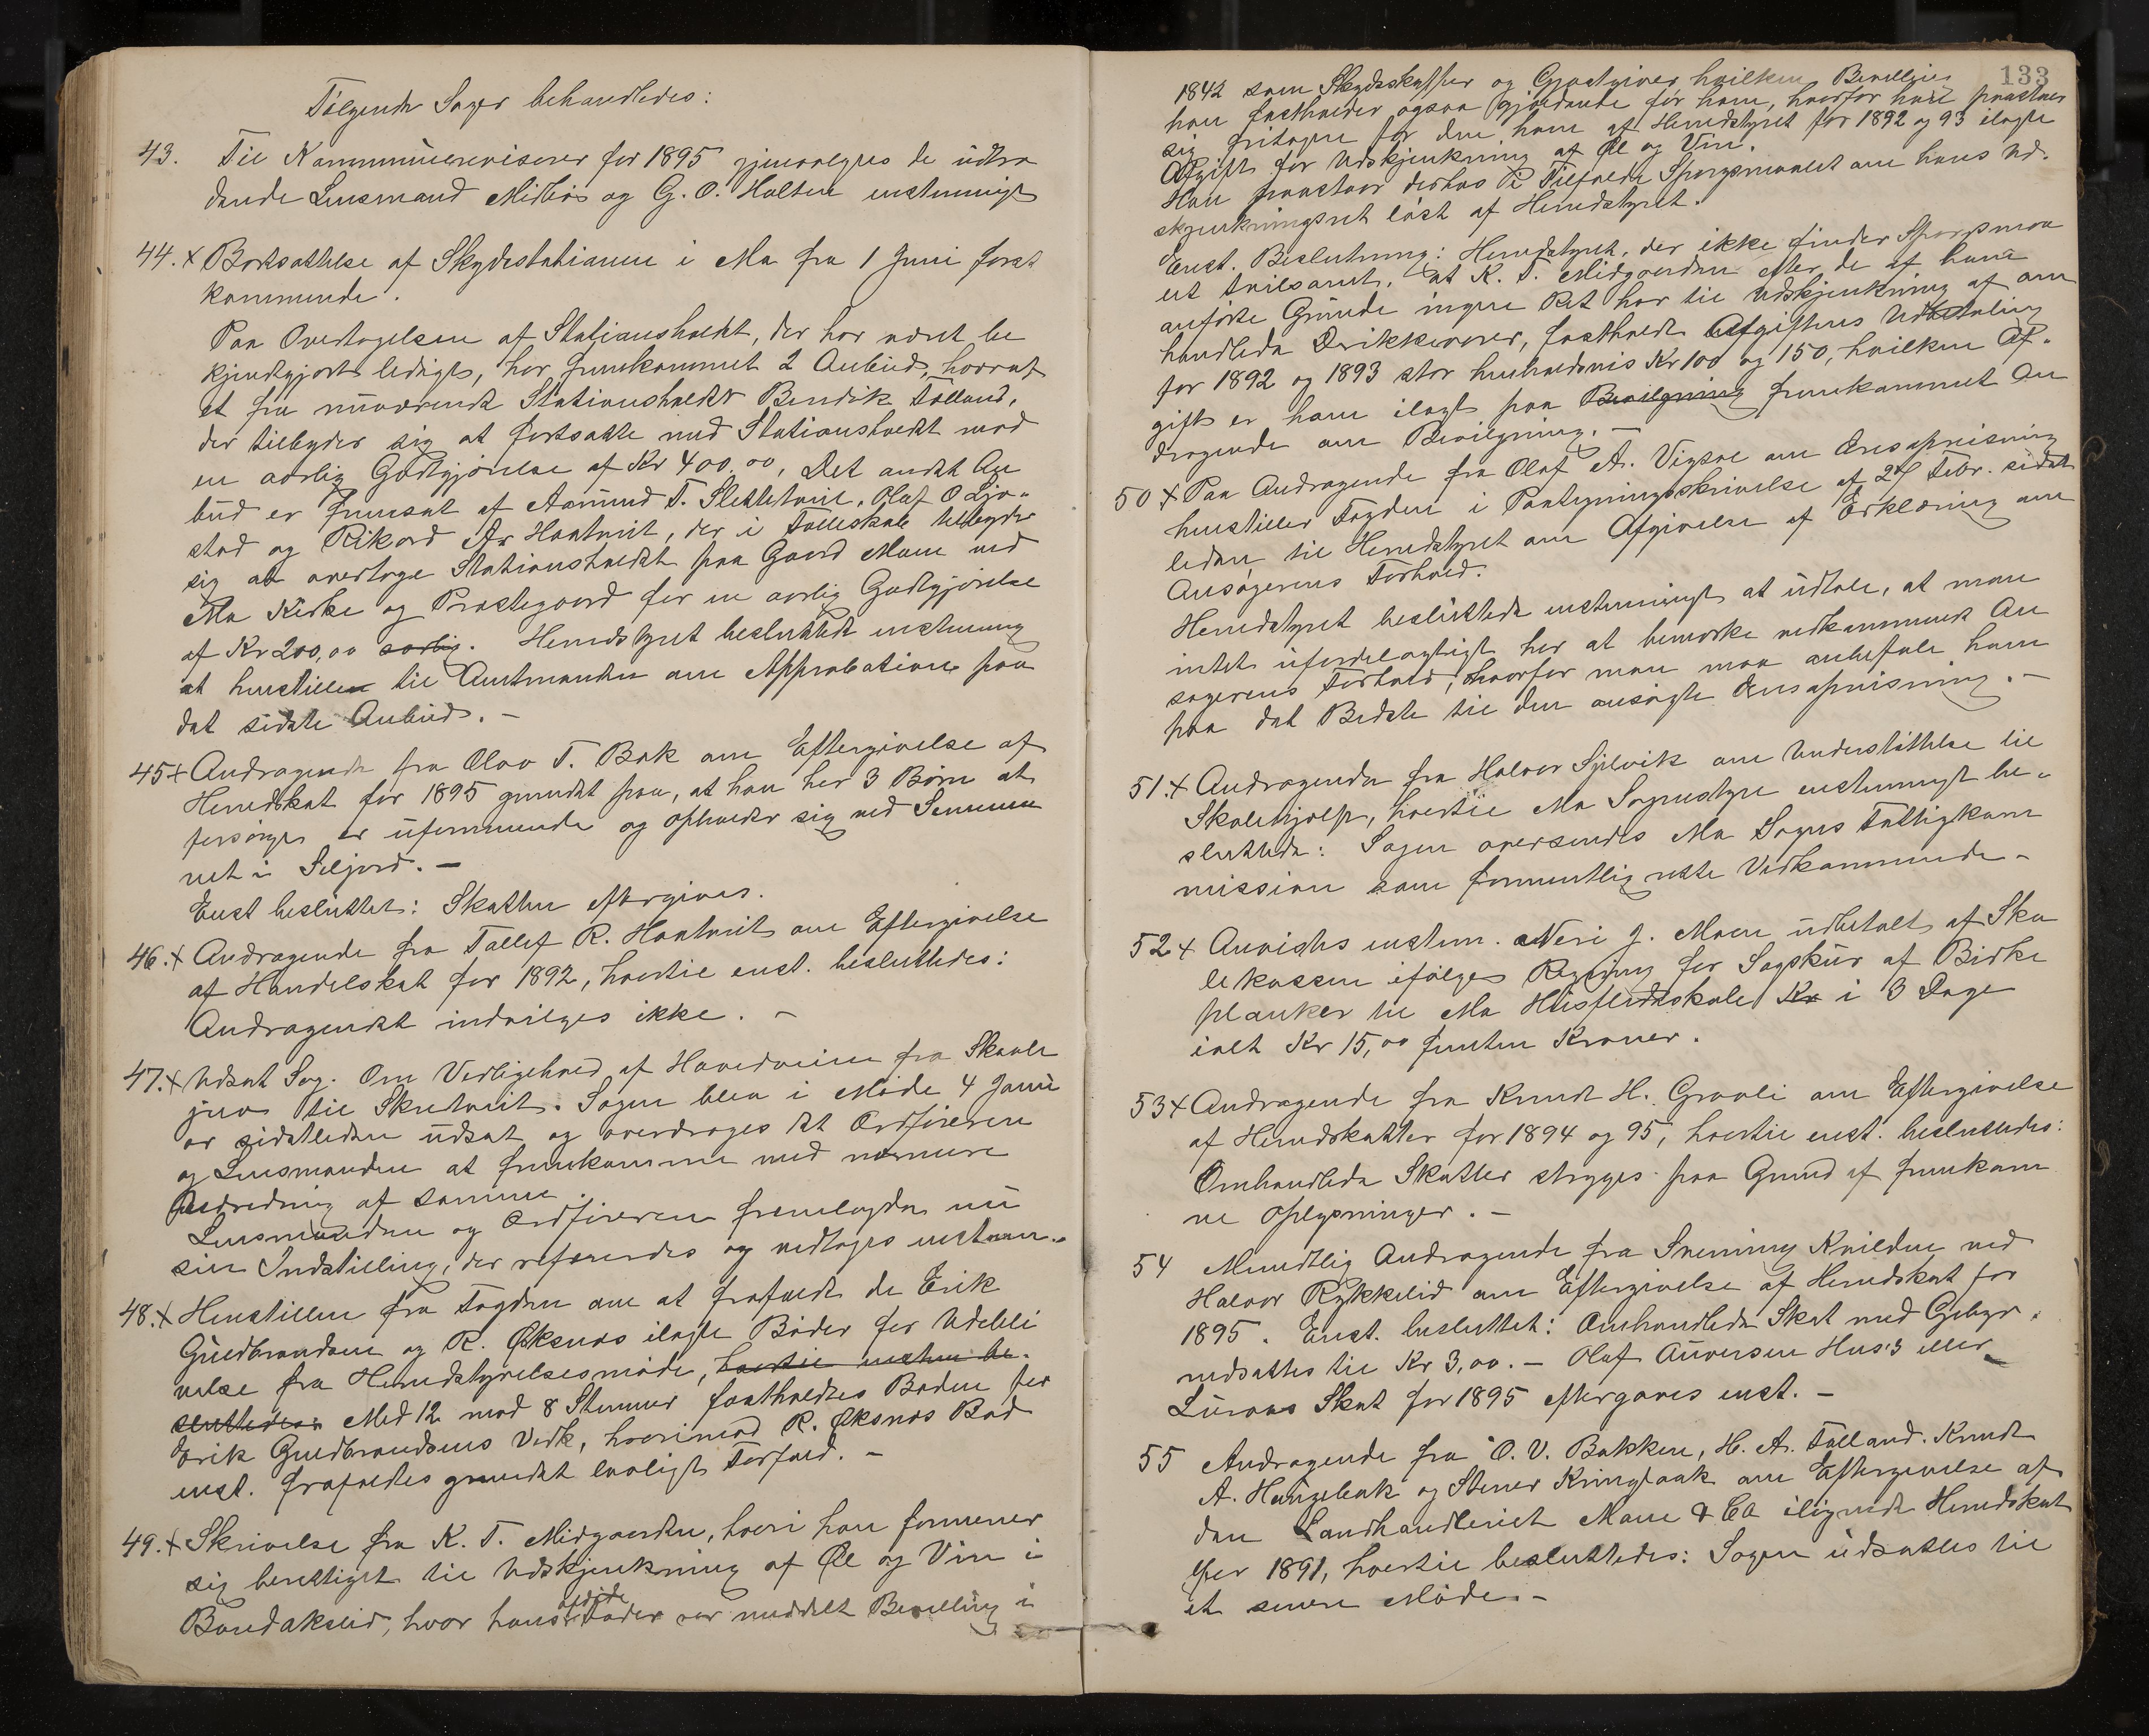 Følgende Sager behandledes:
43. Til Kommunerevisorer for 1895 gjenvalgtes de udtræ
dende Lensmand Midbøe og G. O. Holten enstemmigt
44. x Bortsættelse af Skydsstationen i Mo fra 1 Juni først
kommende.
Paa Overtagelsen af Stationsholdet, der har været be
kjendtgjort ledigt, har fremkommet 2 Anbud, hvoraf
et fra nuværende Stationsholder Bendik Folland,
der tilbyder sig at fortsætte med Stationsholdet mod
en aarlig Godtgjørelse af Kr 400.00, Det andet An
bud er fremsat af Aamund T. Slettetveit, Olaf O Ljo-
stad og Rikard A. Haatveit, der i Fælleskab tilbyder
sig at overtage Stationsholdet paa Gaard Moen ved
Mo Kirke og Præstegaard for en aarlig Godtgjørelse
af Kr 200,00 aarlig. Herredstyret besluttede enstemmig
at henstille til Amtmanden om Approbation paa
det sidste Anbud. –
45 x Andragende fra Olav T. Bak om Eftergivelse af
Herredskat for 1895 grundet paa, at han har 3 Børn at
forsørge er uformuende og opholder sig ved Semina
riet i Seljord. –
Enst besluttet: Skatten eftergives.
46. x Andragende fra Tallef R. Haatveit om Eftergivelse
af Handelskat for 1892, hvortil enst. besluttedes:
Andragendet indvilges ikke. –
47. x Udsat Sag. Om Vedligehold af Hovedveien fra Skaale
juv til Skretveit. Sagen blev i Møde 4 Janu
ar sidstleden udsat og overdroges det Ordføreren
og Lensmanden at fremkomme med nærmere
Udredning af samme.
Lensmanden og Ordføreren fremlagde nu
sin Indstilling, der refereredes og vedtoges enstem.
48. x Henstillen fra Fogden om at frafalde de Erik
Gudbrandsen og R. Øksnæs ilagte Bøder for Udebli
velse fra Herredstyrelsesmøde, hvortil enstem be-
sluttedes: Med 12 mod 8 Stemmer fastholdtes Boden for
Erik Gudbrandsens Vedk, hvorimod R. Øksnæs Bod
enst. frafaldtes grundet lovligt Forfald. –
49. x Skrivelse fra K. T. Midgaarden, hvori han formener
sig berettiget til Udskjenkning af Øl og Vin i
Bandakslid, hvor hans afdøde Fader var meddelt Bevilling i
133
1842 som Skydsskaffer og Gjæstgiver hvilken Bevilling
han fastholder ogsaa gjældende for ham, hvorfor han paastaar
sig fritagen for den ham af Herredstyret for 1892 og 93 ilagte
Afgift for Udskjenkning af Øl og Vin.
Han paastaar derhos i Tilfælde Spørgsmaalet om hans Ud-
skjenkningsret løst af Herredstyret.
Enst. Beslutning: Herredstyret, der ikke finder Spørgsmaa
let tvilsomt, at K. T. Midgaarden efter de af ham
anførte Grunde ingen Ret har til Udskjenkning af om
handlede Drikkevarer, fastholdt Afgiftens Udbetaling
for 1892 og 1893 stor henholdsvis Kr 100 og 150, hvilken Af-
gift er ham ilagt paa Bevilgning fremkommet An
dragende om Bevilgning. –
50 x Paa Andragende fra Olaf A. Vigsæ om Æresopreisning
henstiller Fogden i Paategningsskrivelse af 27 Febr. sidst
leden til Herredstyret om Afgivelse af Erklæring om
Ansøgerens Forhold.
Herredstyret besluttede enstemmigt at udtale, at man
intet ufordelagtigt har at bemærke vedkommende An
søgerens Forhold, hvorfor man maa anbefale ham
paa det Bedste til den ansøgte Æresopreisning. –
51. x Andragende fra Halvor Sjelvik om Understøttelse til
Skolehjælp, hvortil Mo Sognestyre enstemmigt be-
sluttede: Sagen oversendes Mo Sogns Fattigkom
mission som formentlig rette Vedkommende –
52 x Anvistes enstem. Neri J. Moen udbetalt af Sko
lekassen ifølge Regning for Sagskur af Birke
planker til Mo Husflidskole Kr i 3 Dage
ialt Kr 15,00 femten Kroner.
53 x Andragende fra Knudt H. Graali om Eftergivelse
af Herredskatter for 1894 og 95, hvortil enst. besluttedes:
Omhandlede Skatter stryges paa Grund af fremkom
ne Oplysninger. –
54 Mundtlig Andragende fra Svenning Kvilden ved
Halvor Rykkelid om Eftergivelse af Herredskat for
1895. Enst. besluttet: Omhandlede Skat med Gebyr
nedsættes til Kr 3,00. – Olaf Auversen Hus's eller
Luraas Skat for 1895 eftergaves enst. –
55 Andragende fra O. V. Bakken, H. A. Folland. Knudt
A. Haugebak og Stener Kringlaak om Eftergivelse af
den Landhandleriet Moen & Co ilignede Herredskat
for 1891, hvortil besluttedes: Sagen udsattes til
et senere Møde. –